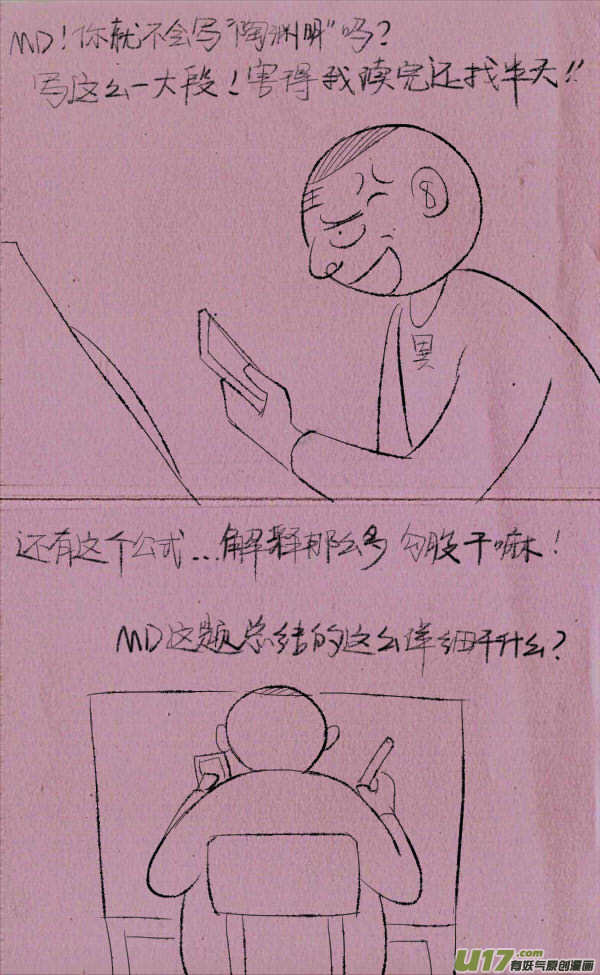 MD！你就不会写“陶渊明”吗？
写这么一大段！害得我读完还找半天！！
異
还有这个公式...解释那么多 勾股干嘛！
MD这题总结的这么详细干什么？
U17.com
有妖气原创漫画